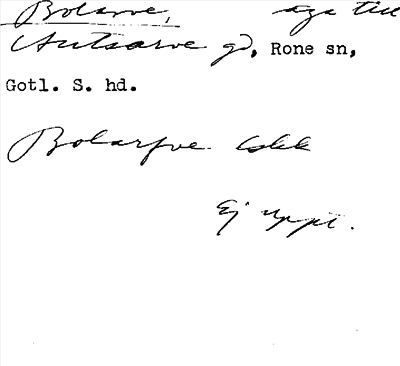 Bolarve, äga till
Autsarve gd, Rone sn,
Gotl. S. hd.
Bolarfve
Ej uppt.